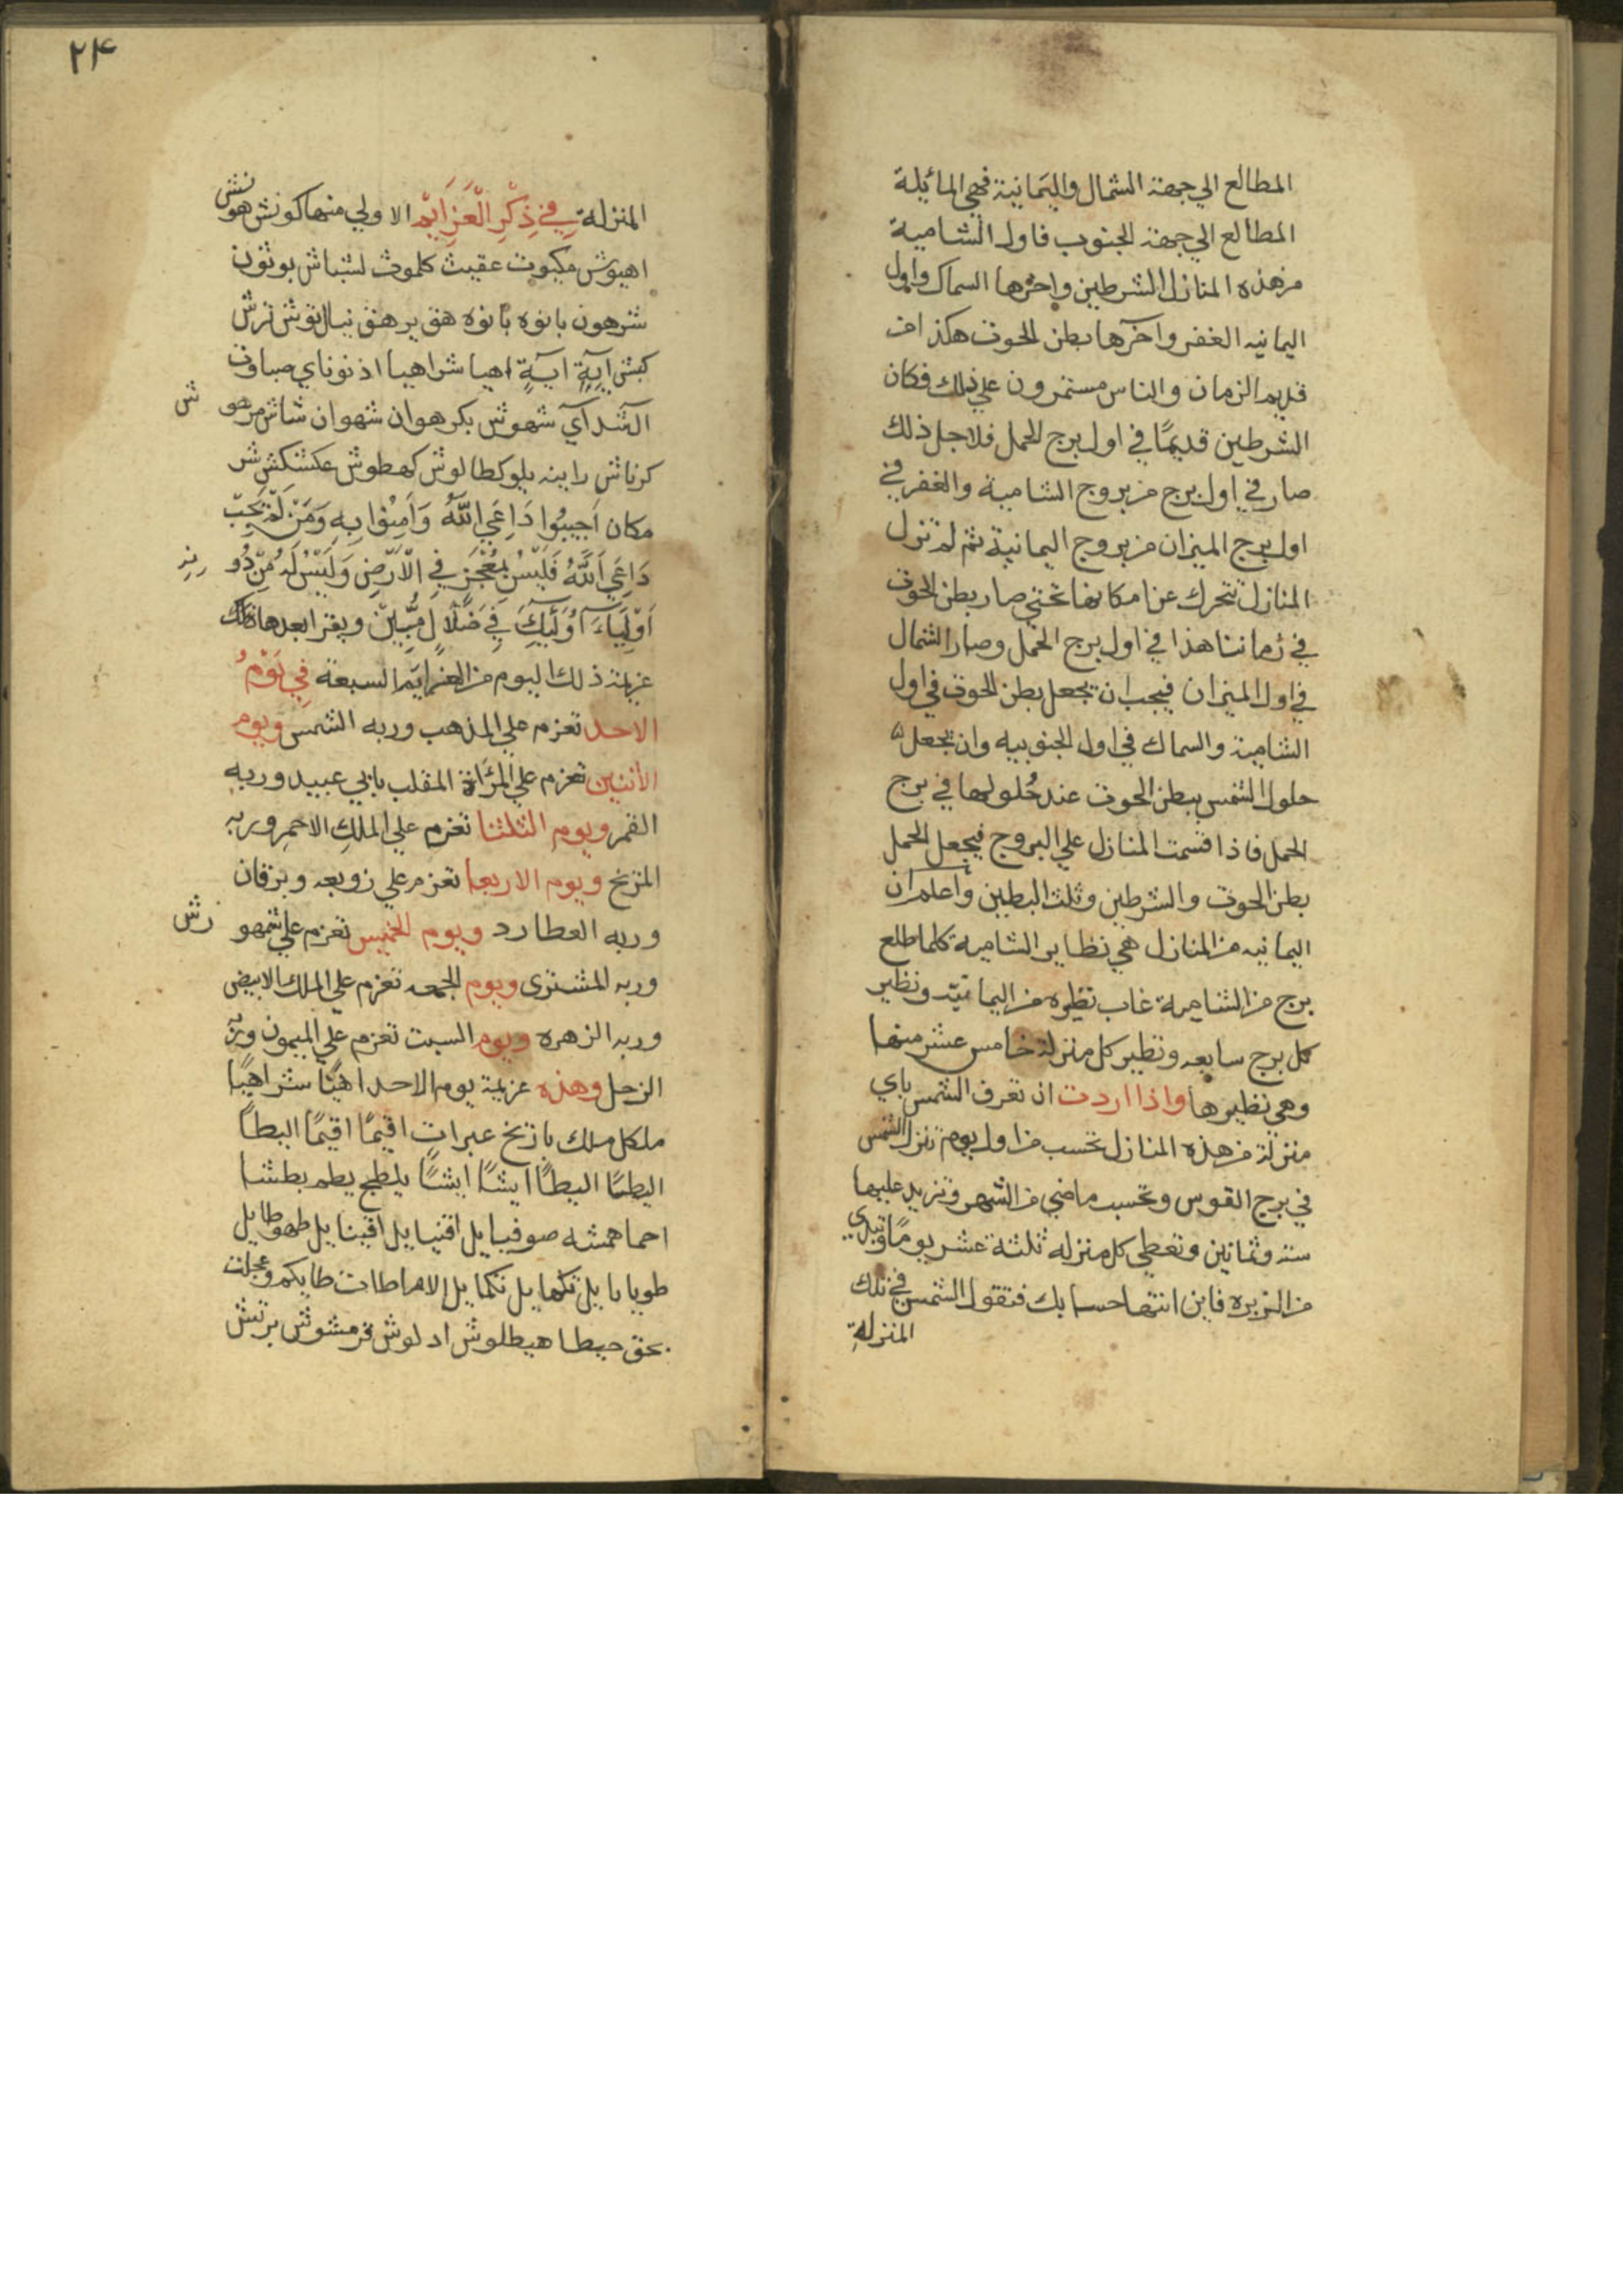 المطالع الي جهة الشمال واليمانية فهي المائلة
المطالع الي جهة الجنوب فاول الشامية
من هذه المنازل الشرطين واخرها السماك واول
اليمانيه الغفر واخرها بطن الحوت هكذا في
قديم الزمان والناس مستمرون علي ذلك فكان
الشرطين قديمًا في اول برج الحمل فلاجل ذلك
صار في اول برج من بروج الشامية والغفر في
اول برج الميزان من بروج اليمانية ثم لم تزل
المنازل تتحرك عن امكانها حتي صار بطن الحوت
في زماننا هذا في اول برج الحمل وصار الشمال
في اول الميزان فيجب ان تجعل بطن الحوت في اول
الشامية والسماك في اول الجنوبيه وان تجعل
حلول الشمس ببطن الحوت عند حُلولها في برج
الحمل فاذا قسمت المنازل علي البروج فيجعل الحمل
بطن الحوت والشرطين وثلث البطين واعلم ان
اليمانيه من المنازل هي نظاير الشامية كلما طلع
برج من الشامية غاب نظيره من اليمانيّه ونظير
كل برج سابعه ونظير كل منزلة خامس عشر منها
وهي نظيرها واذا اردت ان تعرف الشمس باي
منزلة من هذه المنازل تحسب من اول يوم تنزل الشمس
في برج القوس وتحسب ما مضي من الشهر وتزيد عليها
ستة وثمانين وتعطي كل منزله ثلثة عشر يومًا وتبدي
من الزبره فاين انتها حسابك فتقول الشمس في تلك
المنزلةِ
٢٤
المنزلة في ذِكْرِ الْعَزَايِم الاولي منها كونش هونش
اهيوش مكيوت عقيث كلموث لشباش بوثون
شرهون بانوه بانوه هق برهق نيال نوش نرش
كبش ايةٍ ايةٍ اهيا شراهيا اذنوناي صباوت
الشداي شهوش بكرهوان شهوان شاش مرهوش
كرناش رابنه يلوكطالوش كهطوش عكشكش
مكان اَجِيبُوا دَاعِيَ اللّٰهِ وَاٰمِنُوا بِهِ وَمَنْ لَمْ يُجِبْ
دَاعِيَ اللّٰهِ فَلَيْسَ بِمُعْجِزٍ فِي الْاَرْضِ وَلَيْسَ لَهُ مِنْ دُونِهِ
اَوْلِيَاءَ اُولٰئِكَ فِي ضَلَالٍ مُبِينٍ ويقرا بعدها تلك
عزيمة ذلك اليوم من العزايم السبعة فِي يَوْمِ
الاحد تعزم علي المذهب وربه الشمس ويوم
الاثنين تعزم علي المرّاة المقلب بابي عبيد وربه
القمر ويوم الثلثا تعزم علي الملكِ الاحمرِ وربه
المريخ ويوم الاربعا تعزم علي زوبعه وبرقان
وربه العطارد ويوم الخميس تعزم علي شمهورش
وربه المشتري ويوم الجمعه تعزم علي الملك الابيض
وربه الزهره ويوم السبت تعزم علي الميمون وربه
الزحل وهذه عزيمة يوم الاحد اهيًا شراهيًا
ملكل ملك بازخ عبرات اقيمًا اقيمًا البطاً
البطًا البطًا ايشًا ايشًا يلطع يطم بطشا
احما همشه صوفيايل اقنيايل اقينايل طهوطايل
طويايايل نكهايل نكمايل الاماطات طايكم وعجلت
بحق حيطا هيطلوش ادلوش قرمشوش برتش